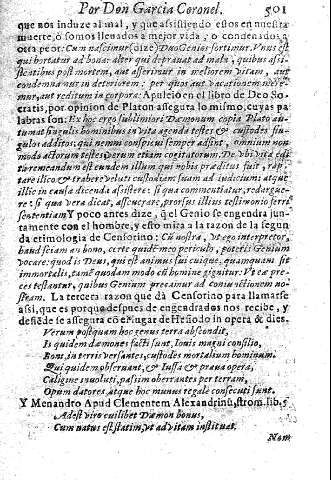 Por Don Garcia Coronel. 501
que nos induze al mal, y que assistiendo estos en nuestra
muerte, ò somos llenados à mejor vida, ò condenados a
otra peor: Cum nascimur (dize) Duo Genios sortimur. Vnus est
qui hortatur ad bona: alter qui deprauat ad mala, quibus assi-
stentibus post mortem, aut asserimur in meliorem vitam, aut
condemnamur in deteriorem: per quos aut vacationem mere-
mur, aut reditum in corpora. Apuleio en el libro de Deo So-
cratis, por opinion de Platon assegura lo mismo, cuyas pa
labras son: Ex hoc ergo sublimiori Dæmonum copia Plato au-
tumat singulis hominibus in vita agenda testes & custodes sin-
gulos additos, qui nemini conspicui semper adsint, omnium non
modo actorum testes verum etiam cogitatorum. De vbi vita edi
ta remeandum est eundem illum qui nobis præditus fuit, rap-
tare illico & trahere veluti custodiam suam ad iudicium atque
illic in causa dicenda assistere: si qua commentiatur, redargue-
re: si qua vera dicat, asseuerare, prorsus illius testimonio ferri
sententiam. Y poco antes dize, q̃ el Genio se engendra jun-
tamente con el hombre, y esto mira a la razon de la segun
da etimologia de Censorino: Cũ nostra, vt ego interpretor,
haud sciam an bono, certe quidẽ meo periculo, poteris Genium
vocare: quod is Deus, qui est animus sui cuique, quamquam sit
immortalis, tamẽ quodam modo cũ homine gignitur. Vt eæ pre-
ces testantur, quibus Genium precamur ad coniunctionem no-
stram. La tercera razon que dà Censorino para llamarse
assi, que es porque despues de engendrados nos recibe, y
defiẽde se assegura cõ el lugar de Hesiodo in opera & dies.
Verum postquam hoc genus terra abscondit,
Is quidem dæmones facti sunt, Iouis magni consilio,
Boni, in terris versantes, custodes mortalium hominum.
Qui quidem obseruant, & iussa & praua opera,
Caligine inuoluti, passim oberrantes per terram,
Opum datores atque hoc munus regale consecuti sunt.
Y Menandro Apud Clementem Alexandrinũ, strom. lib. 5
Adest viro cuilibet Dæmon bonus,
Cum natus est, statim, vt ad vitam instituat.
Nam